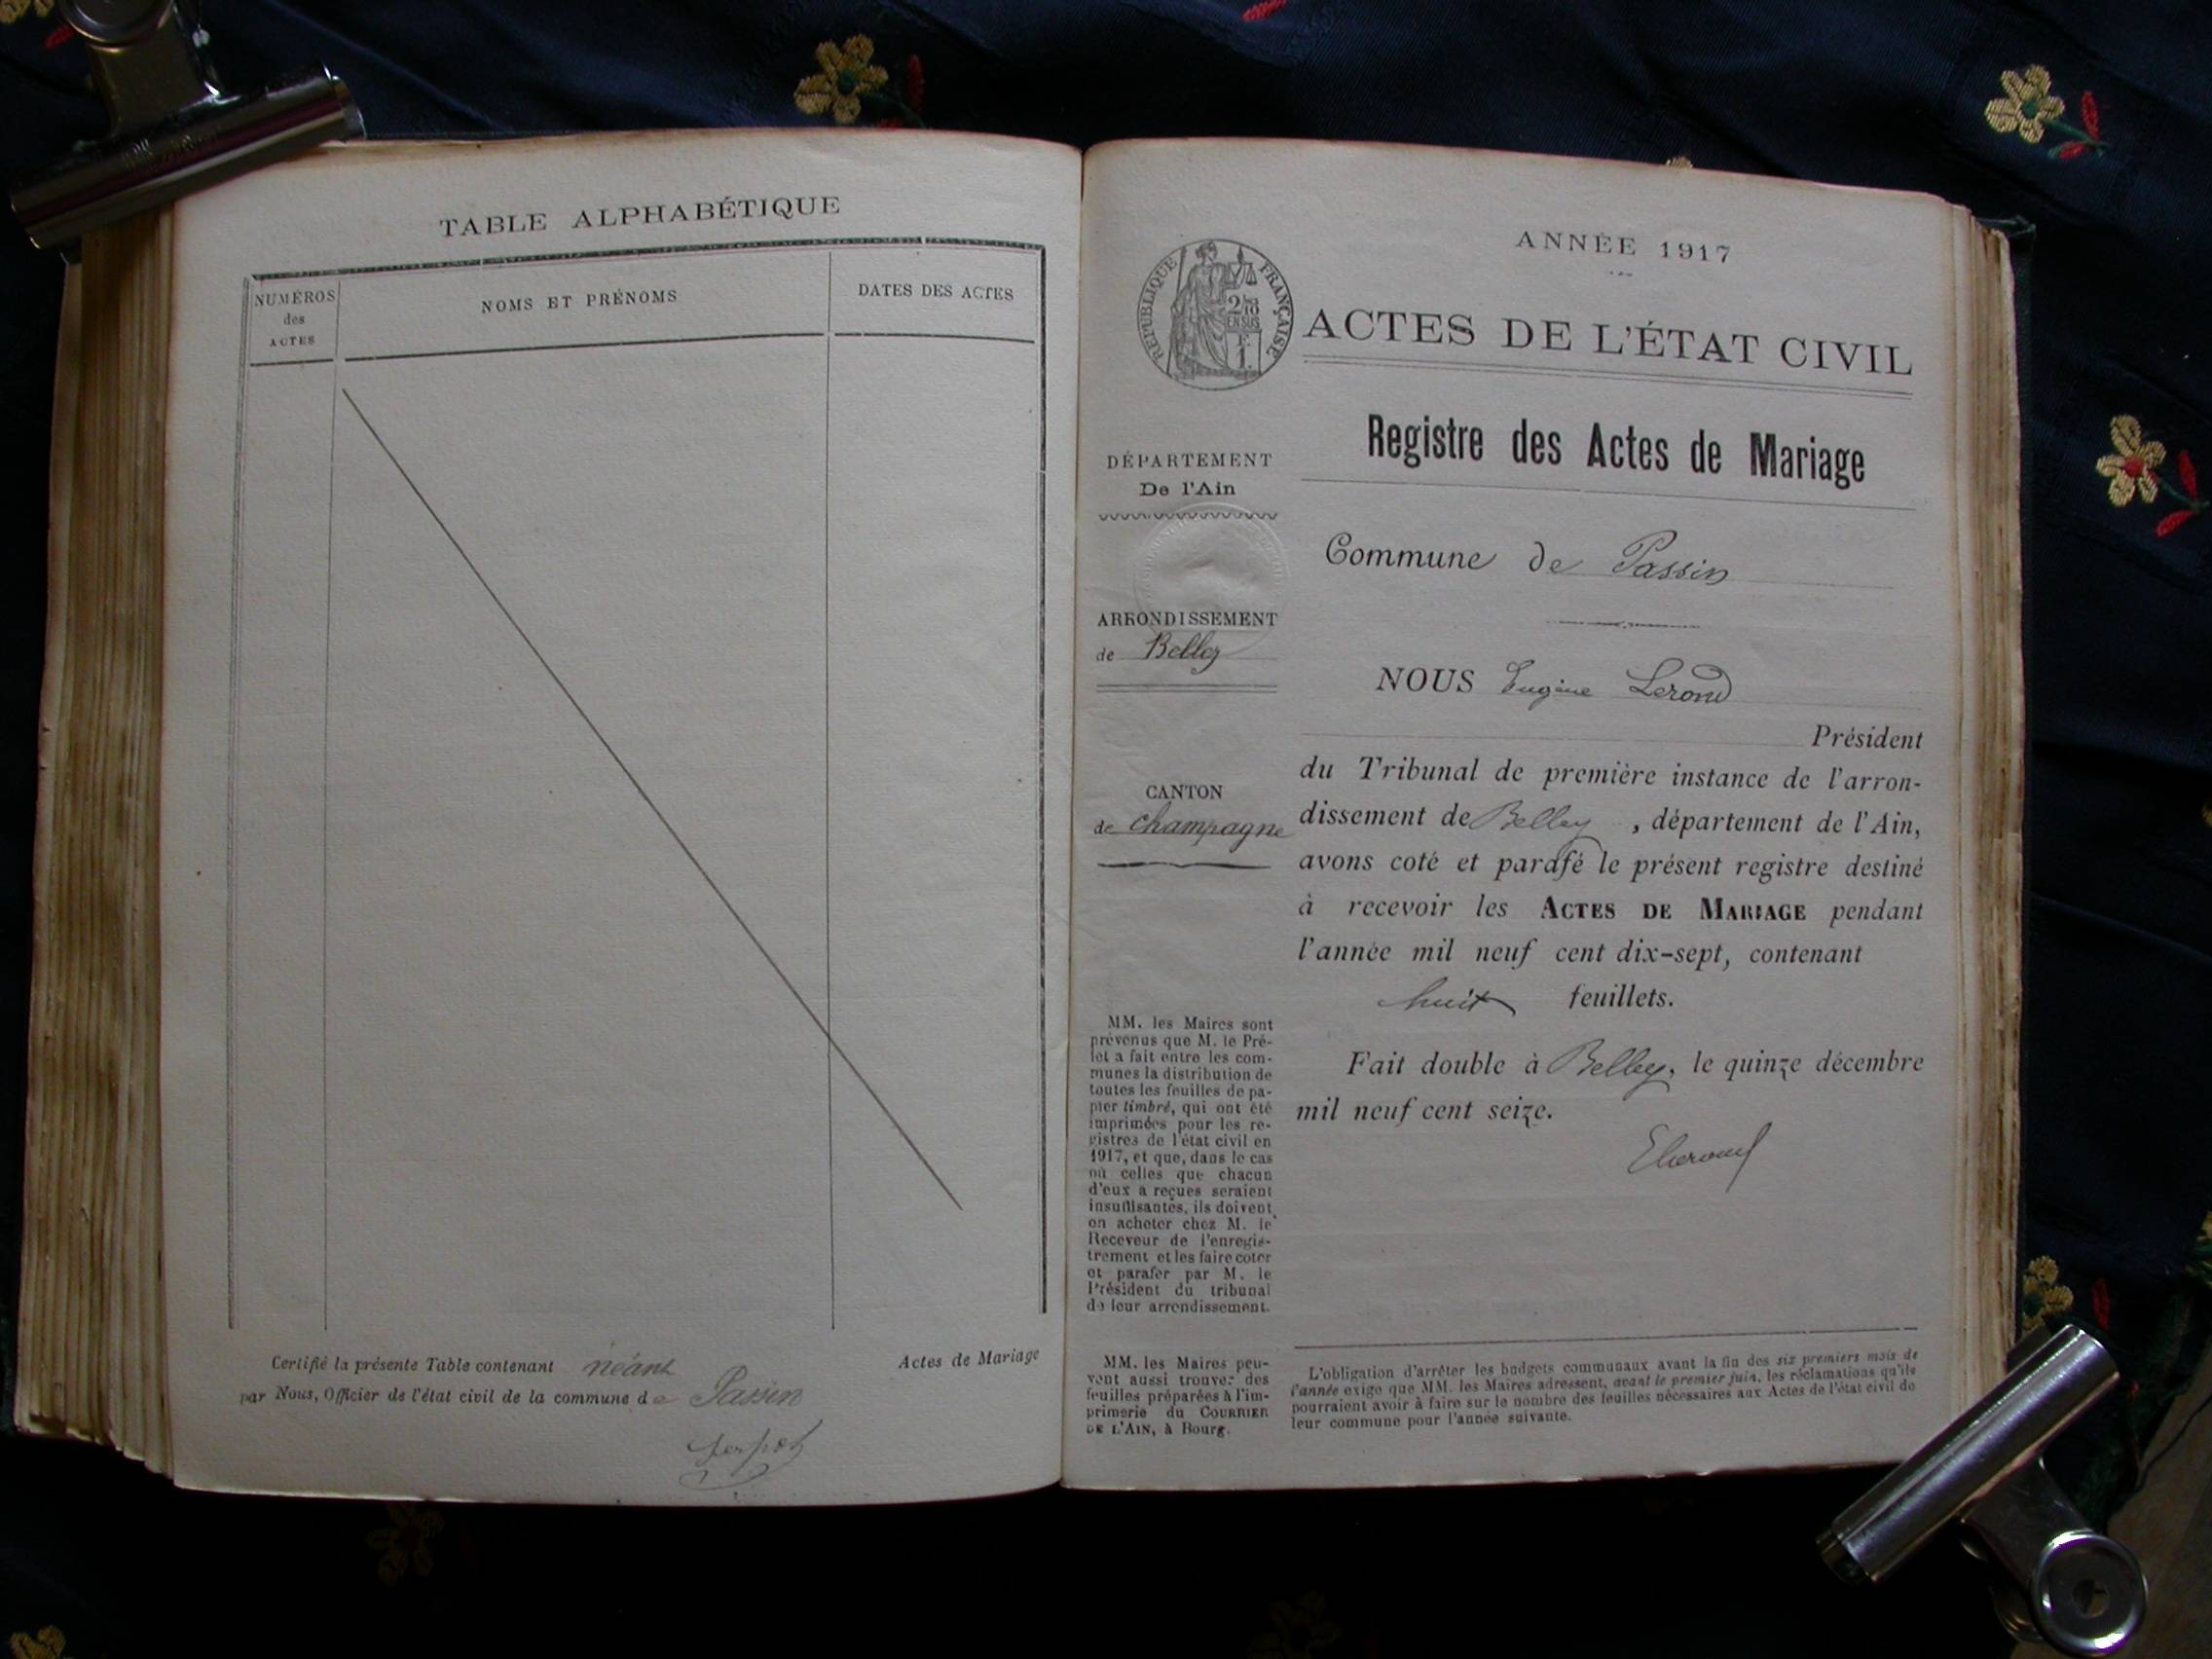 TABLE ALPHABÉTIQUE
NUMÉROS
des
ACTES
NOMS ET PRÉNOMS
DATES DES ACTES
Certifié la présente Table contenant néant Actes de Mariage
par Nous, Officier de l'état civil de la commune de Passin
ANNÉE 1917
RÉPUBLIQUE FRANÇAISE
2/10
EN SUS
F.
1.
ACTES DE L'ÉTAT CIVIL
Registre des Actes de Mariage
DÉPARTEMENT
De l'Ain
ARRONDISSEMENT
de Belley
CANTON
de Champagne
MM. les Maires sont
prévenus que M. le Pré-
fet a fait entre les com-
munes la distribution de
toutes les feuilles de pa-
pier timbré, qui ont été
imprimées pour les re-
gistres de l'état civil en
1917, et que, dans le cas
où celles que chacun
d'eux a reçues seraient
insuffisantes, ils doivent
en acheter chez M. le
Receveur de l'enregis-
trement et les faire coter
et parafer par M. le
Président du tribunal
de leur arrondissement.
MM. les Maires peu-
vent aussi trouver des
feuilles préparées à l'im-
primerie du COURRIER
DE L'AIN, à Bourg.
Commune de Passin
NOUS Eugène Lerond
Président
du Tribunal de première instance de l'arron-
dissement de Belley, département de l'Ain,
avons coté et parafé le présent registre destiné
à recevoir les ACTES DE MARIAGE pendant
l'année mil neuf cent dix-sept, contenant
huit feuillets.
Fait double à Belley, le quinze décembre
mil neuf cent seize.
L'obligation d'arrêter les budgets communaux avant la fin des six premiers mois de
l'année exige que MM. les Maires adressent, avant le premier juin, les réclamations qu'ils
pourraient avoir à faire sur le nombre des feuilles nécessaires aux Actes de l'état civil de
leur commune pour l'année suivante.